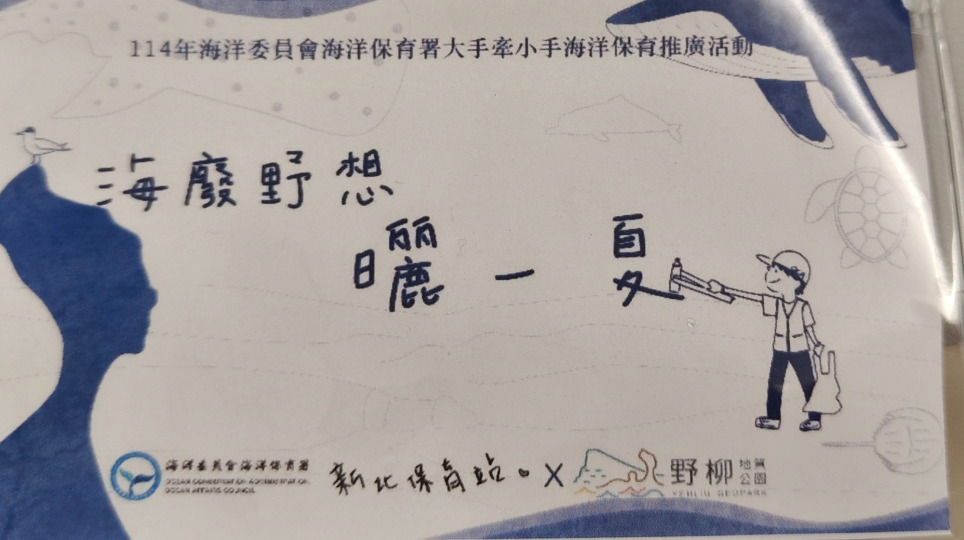 114年海洋委員會海洋保育署大手牽小手海洋保育推廣活動
海廢野想
曬一夏
海洋委員會海洋保育署
OCEAN CONSERVATION ADMINISTRATION,
OCEAN AFFAIRS COUNCIL
新北保育站。X
野柳地質公園
YEHLIU GEOPARK